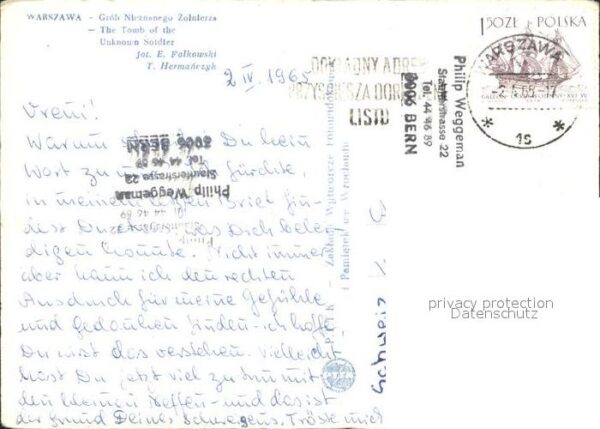 WARSZAWA - Grób Nieznanego Żołnierza
- The Tomb of the
Unknown Soldier
fot. E. Falkowski
T. Hermańczyk
1.50 ZŁ POLSKA
WARSZAWA
-2.4.65-17
* 1s *
DOKŁADNY ADRES
PRZYSPIESZA DORĘ
LISTU
Philip Weggeman
Stauffacherstrasse 22
Tel. 44 46 89
3006 BERN
2 IV. 1965
Vreni!
Warum Du kein
Wort zu fürchte,
in meinem letzten Brief fin-
dest Du was Dich belei-
digen konnte. Nicht immer
aber kann ich den rechten
Ausdruck für meine Gefühle
und gedanken finden - ich hoffe,
Du wirst das verstehen. Vielleicht
hast Du jetzt viel zu tun mit
den kleinen Neffen - und das ist
der Grund Deines Schweigens. Tröste mich
3006 BERN
Tel. 44 46 89
Philip Weggeman
Zakłady Wytwórcze
i Pamiątek
Schweiz
privacy protection
Datenschutz